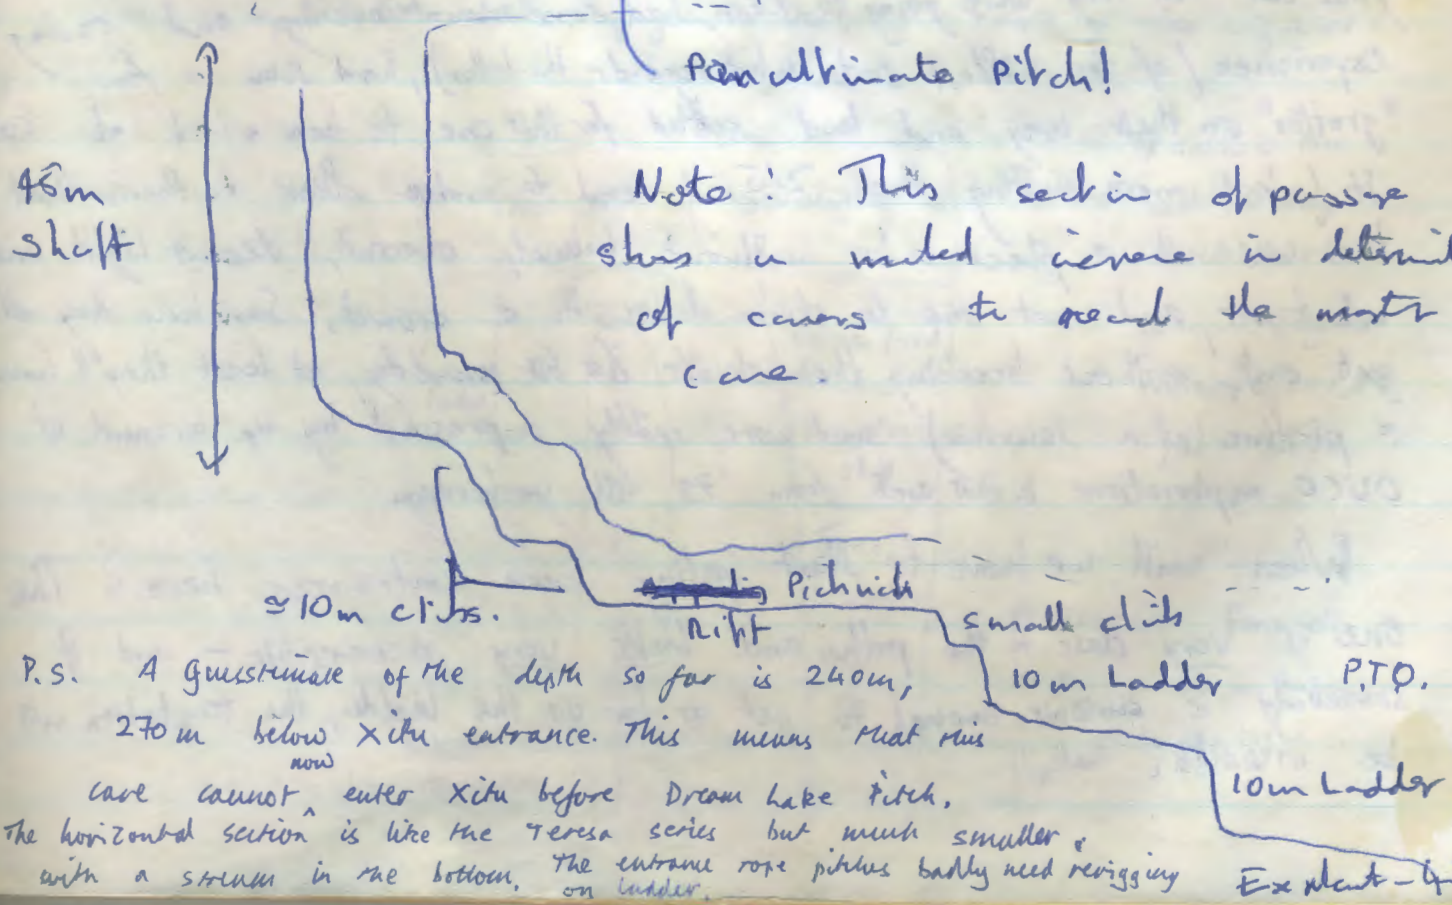 Panultimate Pitch!
45m
shaft
Note: This section of passage
shows a marked increase in determination
of cavers to reach the master
cave.
≃10m climbs.
Picknick
Rift
small climbs
10m Ladder
P.T.O.
10m Ladder
P.S. A guesstimate of the depth so far is 240m,
270m below Xitu entrance. This means that this
cave cannot now enter Xitu before Dream Lake Pitch.
The horizontal section is like the Teresa series but much smaller &
with a stream in the bottom. The entrance rope pitches badly need rerigging
on ladder.